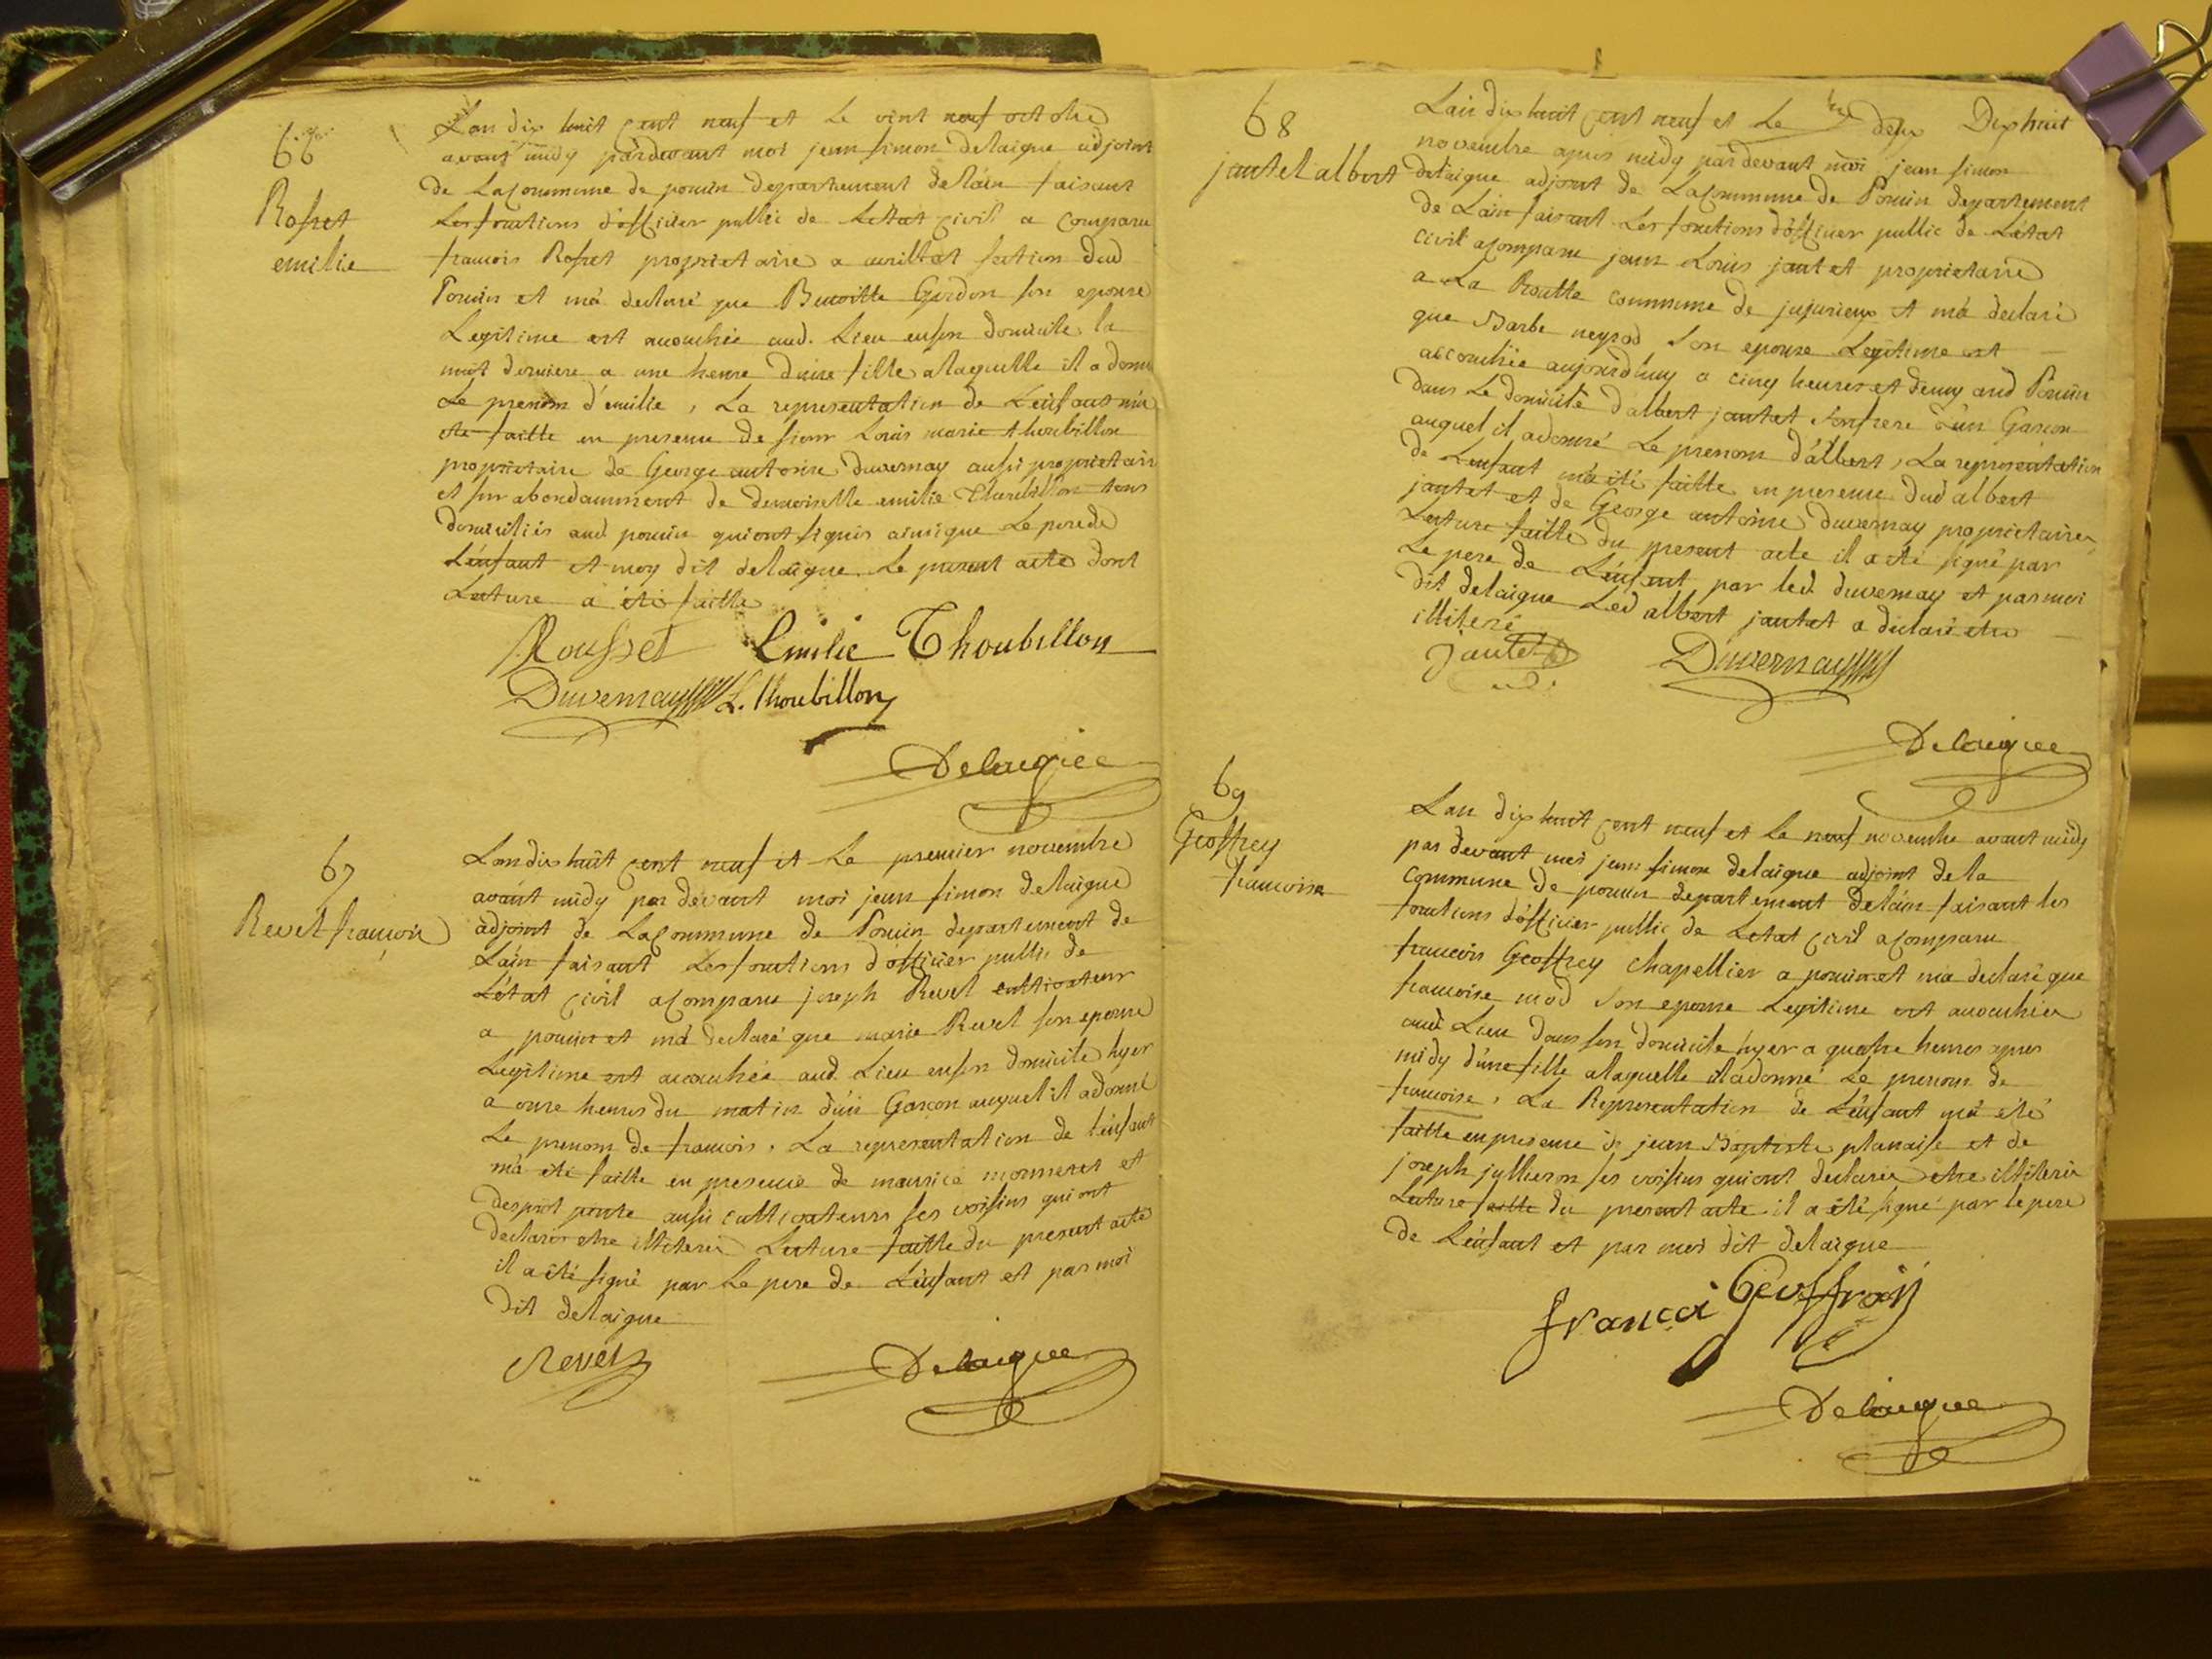 66
Rosset
emilie
Lan dix huit cent neuf et Le vint neuf octobre
avant midy pardevant moi jean simon delaigue adjoint
de La Commune de poncin departement de lain faisant
Les fonctions d'officier public de Letat civil a comparu
francois Rosset proprietaire a avrillat section dud
Poncin et m'a declaré que Benoitte Gerdon son epouse
Legitime est accouchée aud. Lieu en son domicile la
nuit derniere a une heure d'une fille alaquelle il a donné
Le prenom d'emilie, La representation de L'enfant m'a
eté faitte en presence de sieur Louis marie thoubillon
proprietaire de George antoine duvernay aussi proprietaire
et surabondamment de demoiselle emilie Thoubillon tous
domiciliés aud poncin qui ont signés ainsi que Le pere de
L'enfant et moy dit delaigue Le present acte dont
Lecture a été faitte
Rousset Emilie Thoubillon
Duvernay L. Thoubillon
Delaigue
67
Revel francois
Lan dix huit cent neuf et Le premier novembre
avant midy par devant moi jean simon delaigue
adjoint de La Commune de Poncin departement de
L'ain faisant Les fonctions d'officier public de
L'etat civil a comparu joseph Revel cultivateur
a poncin et m'a declaré que marie Revel son epouse
Legitime est accouchée aud. Lieu en son domicile hyer
a onze heures du matin d'un Garcon auquel il a donné
Le prenom de francois, La representation de L'enfant
m'a eté faitte en presence de maurice monneret et
despiot aussi cultivateurs ses voisins qui ont
declarés etre illiterés Lecture faitte du present acte
il a eté signé par Le pere de L'enfant et par moi
dit delaigue
Revel Delaigue
68
jantet albert
Lan dix huit cent neuf et Le deux Dix huit
novembre apres midy pardevant moi jean simon
delaigue adjoint de La Commune de Poncin departement
de Lain faisant Les fonctions d'officier public de L'etat
civil a comparu jean Louis jantet proprietaire
a La Route commune de jujurieux et m'a declaré
que Barbe neyrod son epouse Legitime est
accouchée aujourd'huy a cinq heures et demy aud Poncin
dans Le domicile d'albert jantet son frere d'un Garcon
auquel il a donné Le prenom d'albert, La representation
de L'enfant m'a été faitte en presence dud albert
jantet et de George antoine duvernay proprietaires
Lecture faitte du present acte il a eté signé par
Le pere de L'enfant par led. duvernay et par moi
dit delaigue Led albert jantet a declaré etre
illiteré
jantet Duvernay
Delaigue
69
Geoffrey
francoise
Lan dix huit cent neuf et Le neuf novembre avant midy
par devant moi jean simon delaigue adjoint de la
Commune de poncin departement de lain faisant les
fonctions d'officier public de Letat civil a comparu
francois Geoffrey chapellier a poncin et m'a declaré que
francoise mod son epouse Legitime est accouchée
aud Lieu dans son domicile hyer a quatre heures apres
midy d'une fille alaquelle il a donné Le prenom de
francoise, La Representation de L'enfant m'a été
faitte en presence de jean Baptiste planaise et de
joseph jullieron ses voisins qui ont declarés etre illiterés
Lecture faitte du present acte il a été signé par le pere
de L'enfant et par moi dit delaigue
francoi Geoffray
Delaigue